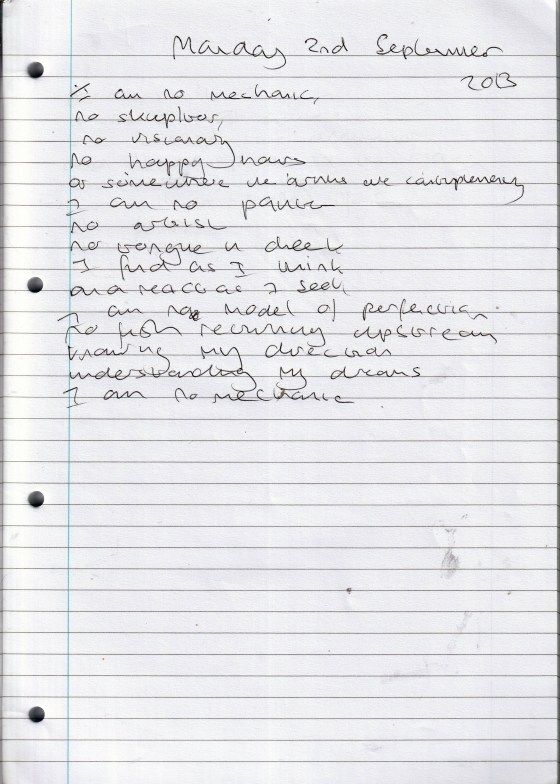 Monday 2nd September
2013
I am no mechanic,
no skupltor,
no visionary
no happy
or somewhere
I am no painter
no artist
no tongue n cheek
I find as I think
and react as I seek
I am no model of perfection.
No fish returning upstream
knowing my direction
understanding my dreams
I am no mechanic